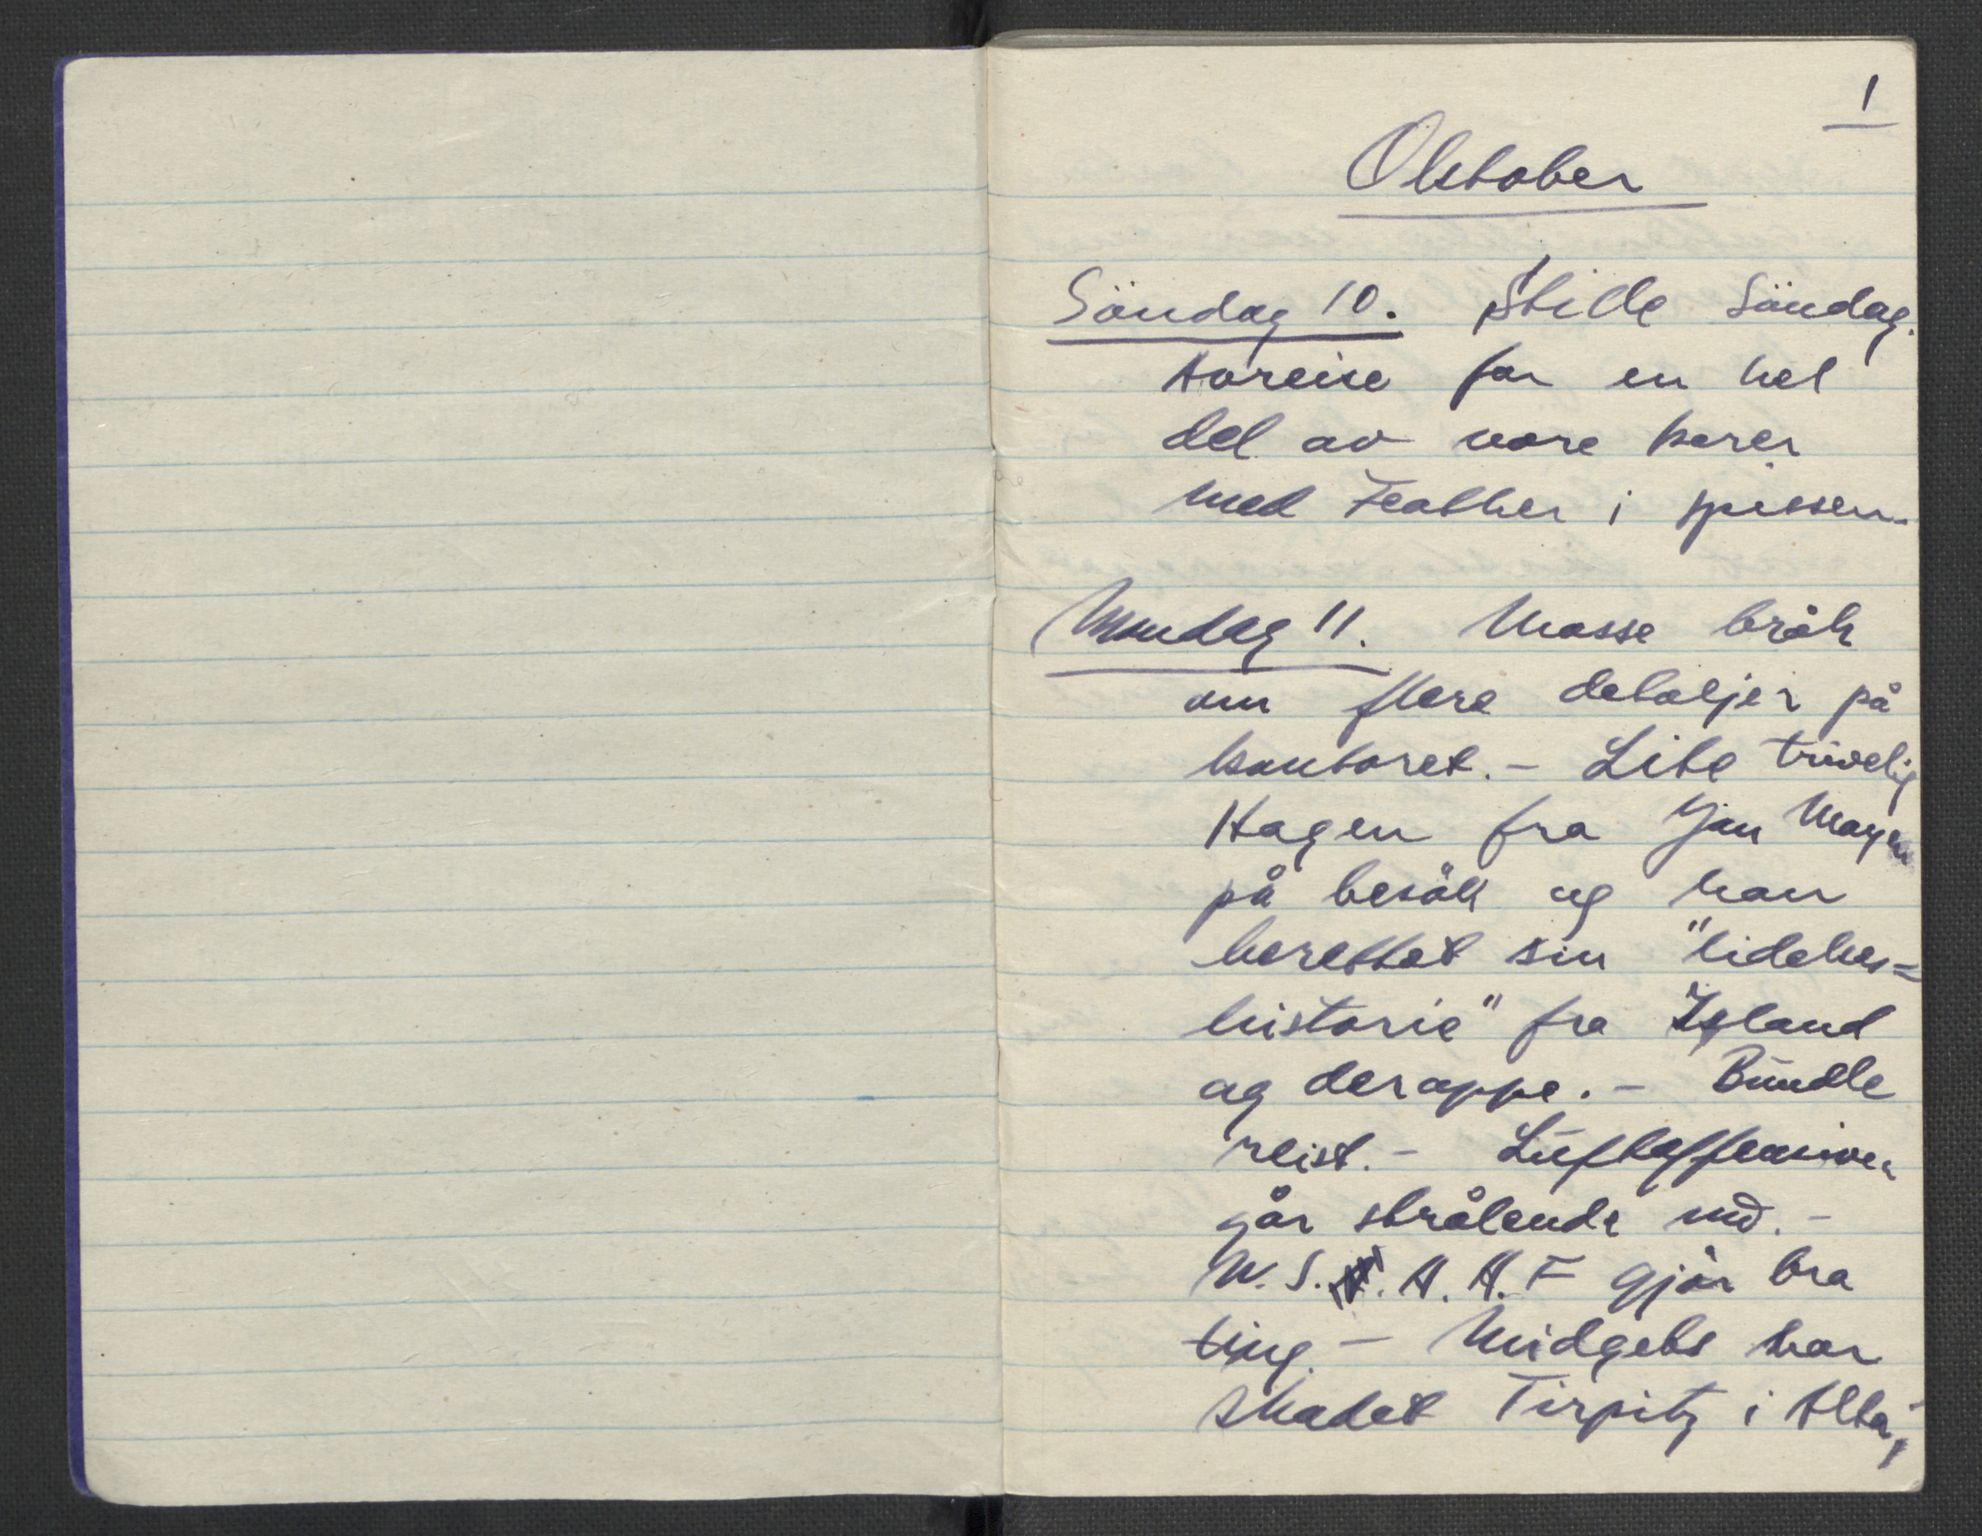 1
Oktober
Söndag 10. Stille Söndag.
Avreise for en hel
del av våre karer
med Feather i spissen.
Mandag 11. Masse bråk
om flere detaljer på
kontoret. - Lite trivelig
Hagen fra Jan Mayen
på besök og han
berettet sin "lidelses=
historie" fra Island
og deroppe. - Bundle
reist. - Luftoffensiven
går strålende ud. -
U.S. A. A. F gjör bra
ting. - Midgets har
skadet Tirpitz i Alta,